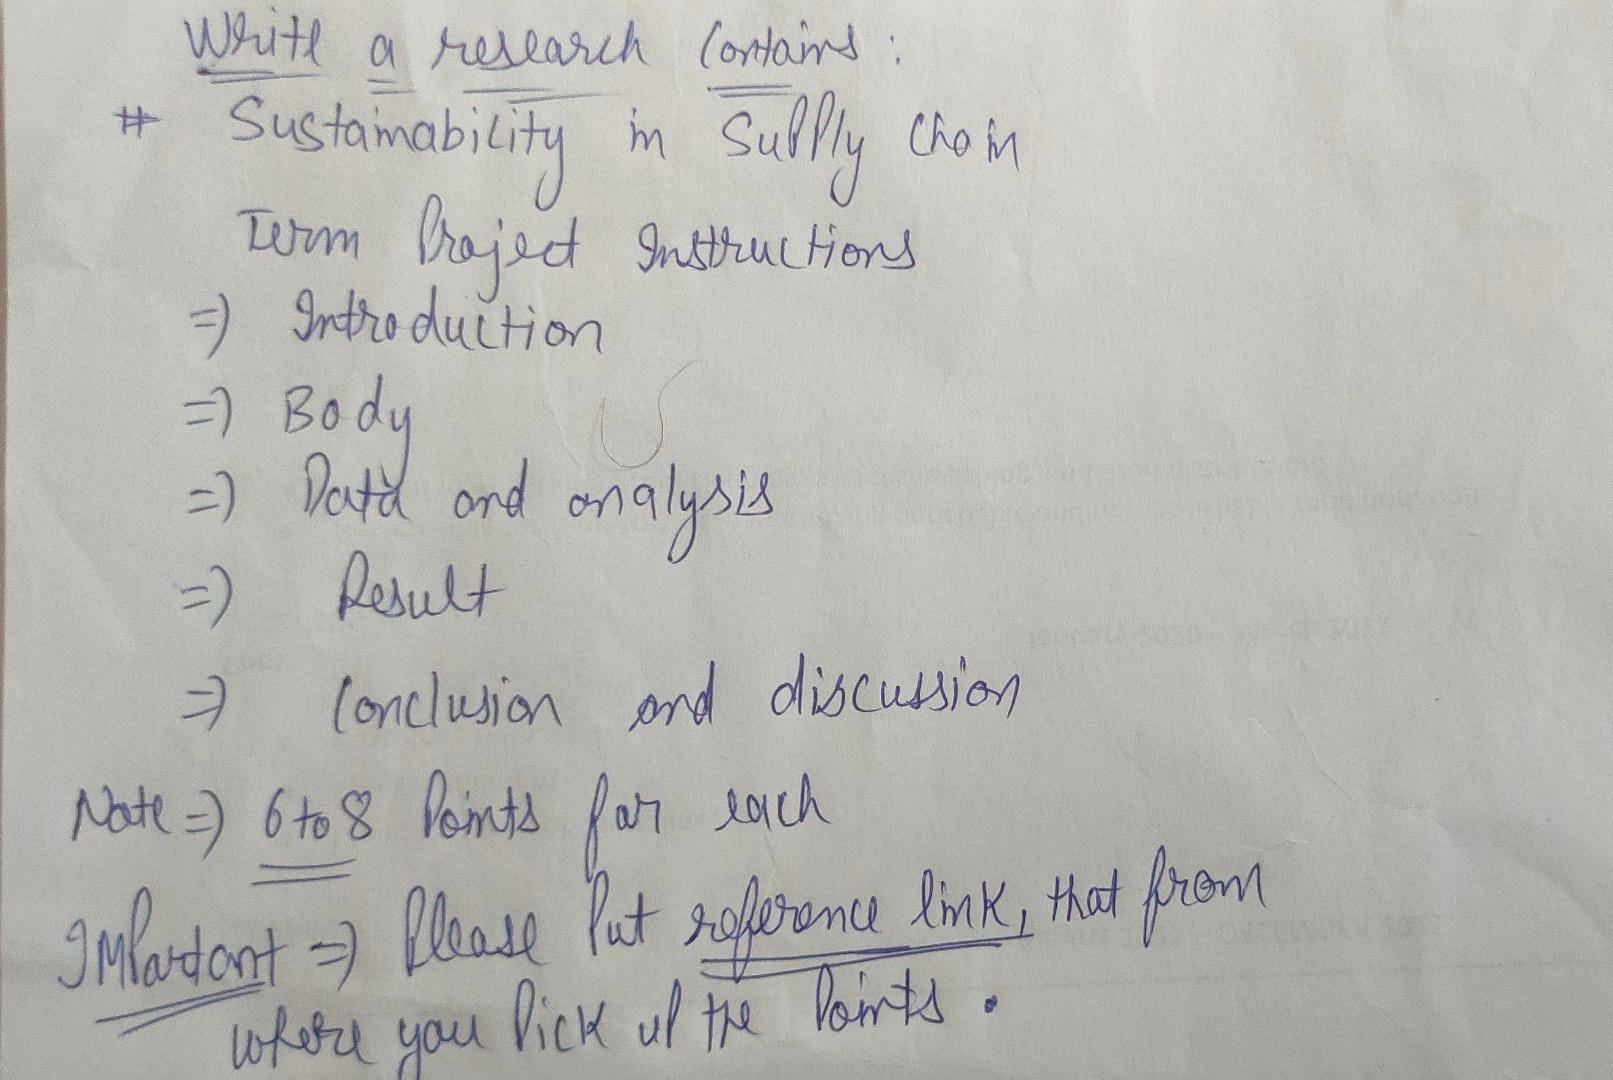 Write a research Contains :
# Sustainability in Supply Chain
Term Project Instructions
=) Introduction
=) Body
=) Data and analysis
=) Result
=) Conclusion and discussion
Note =) 6 to 8 Points for each
IMPortant =) Please Put reference link, that from
where you Pick up the Points .